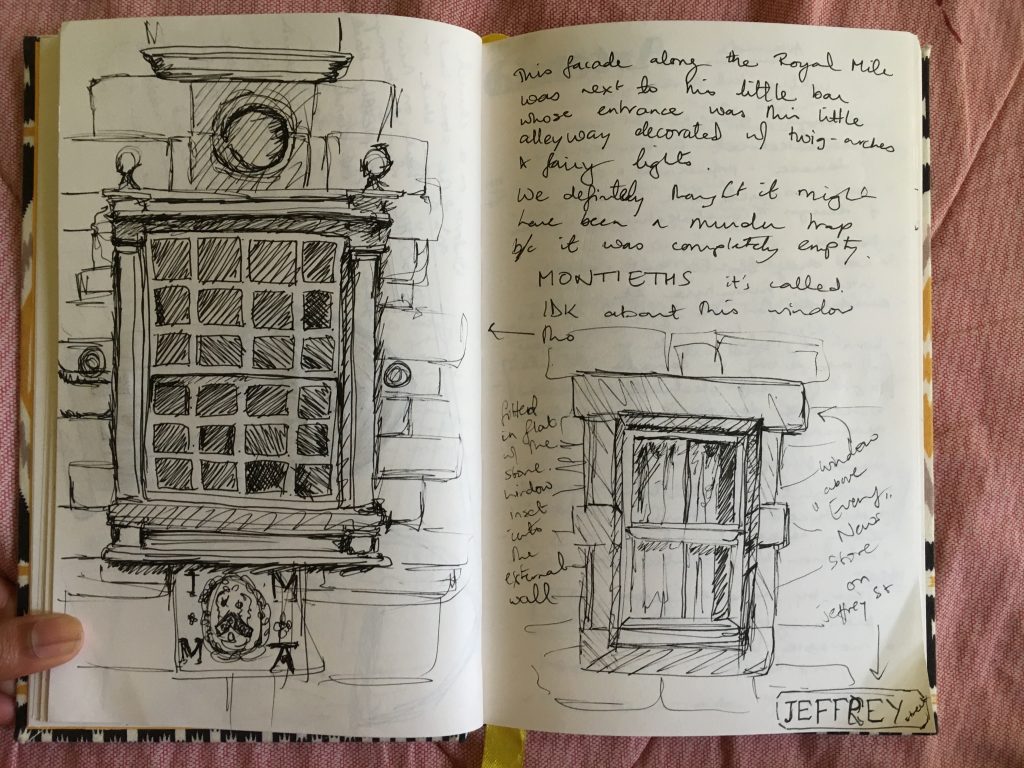 I M
M A
This facade along the Royal Mile
was next to this little bar
whose entrance was this little
alleyway decorated w/ twig-arches
& fairy lights.
We definitely thought it might
have been a murder trap
b/c it was completely empty.
MONTIETHS it's called.
IDK about this window
tho
fitted
in flat
w/ the
stone.
window
inset
into
the
external
wall
window
above
"Evening"
News
store
on
Jeffrey St
JEFFREY